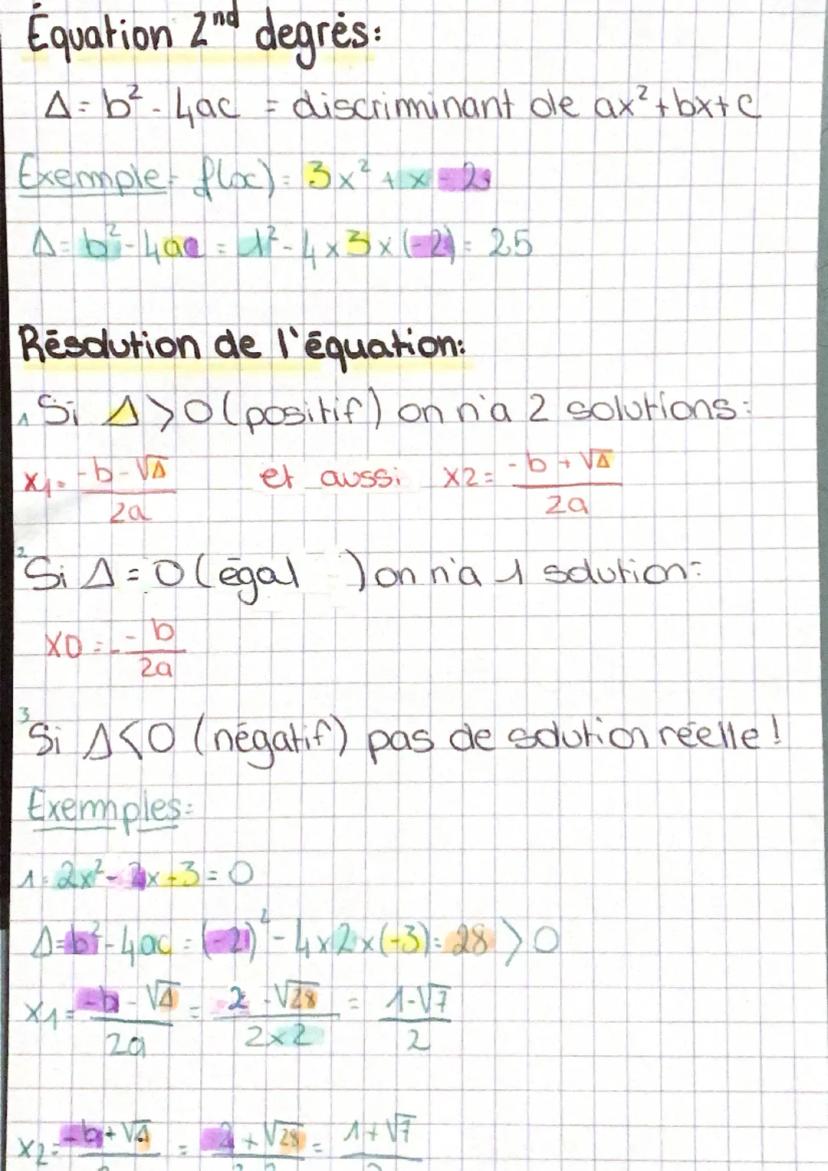 Équation 2nd degrés:
Δ = b² - 4ac = discriminant de ax²+bx+c
Exemple: f(x) = 3x² + x - 2
Δ = b² - 4ac = 1² - 4 x 3 x (-2) = 25
Résolution de l'équation:
1 Si Δ > 0 (positif) on n'a 2 solutions:
x1 = (-b - √Δ)/2a et aussi x2 = (-b + √Δ)/2a
2 Si Δ = 0 (égal ) on n'a 1 solution:
x0 = - b/2a
3 Si Δ < 0 (négatif) pas de solution réelle !
Exemples:
1: 2x² - 2x - 3 = 0
Δ = b² - 4ac = (-2)² - 4 x 2 x (-3) = 28 > 0
x1 = (-b - √Δ)/2a = (2 - √28)/(2 x 2) = (1 - √7)/2
x2 = -b + √Δ = 2 + √28 = 1 + √7